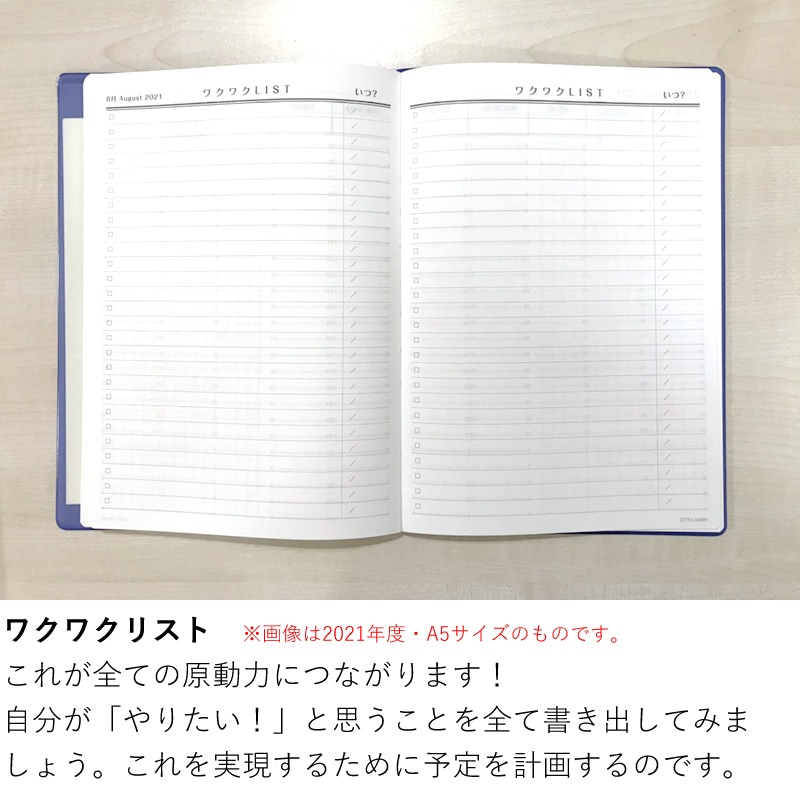 8月 August 2021 ワクワクLIST いつ?
ワクワクLIST いつ?
CITTA DIARY
ワクワクリスト ※画像は2021年度・A5サイズのものです。
これが全ての原動力につながります！
自分が「やりたい！」と思うことを全て書き出してみま
しょう。これを実現するために予定を計画するのです。